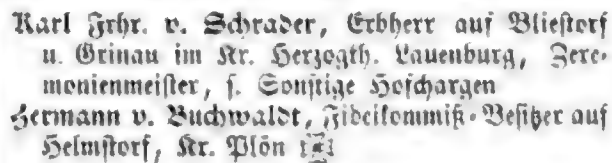 Karl Frhr. v. Schrader, Erbherr auf Bliestorf
u. Grinau im Kr. Herzogth. Lauenburg, Zere-
monienmeister, s. Sonstige Hofchargen
Hermann v. Buchwaldt, Fideikommiß-Besitzer auf
Helmstorf, Kr. Plön